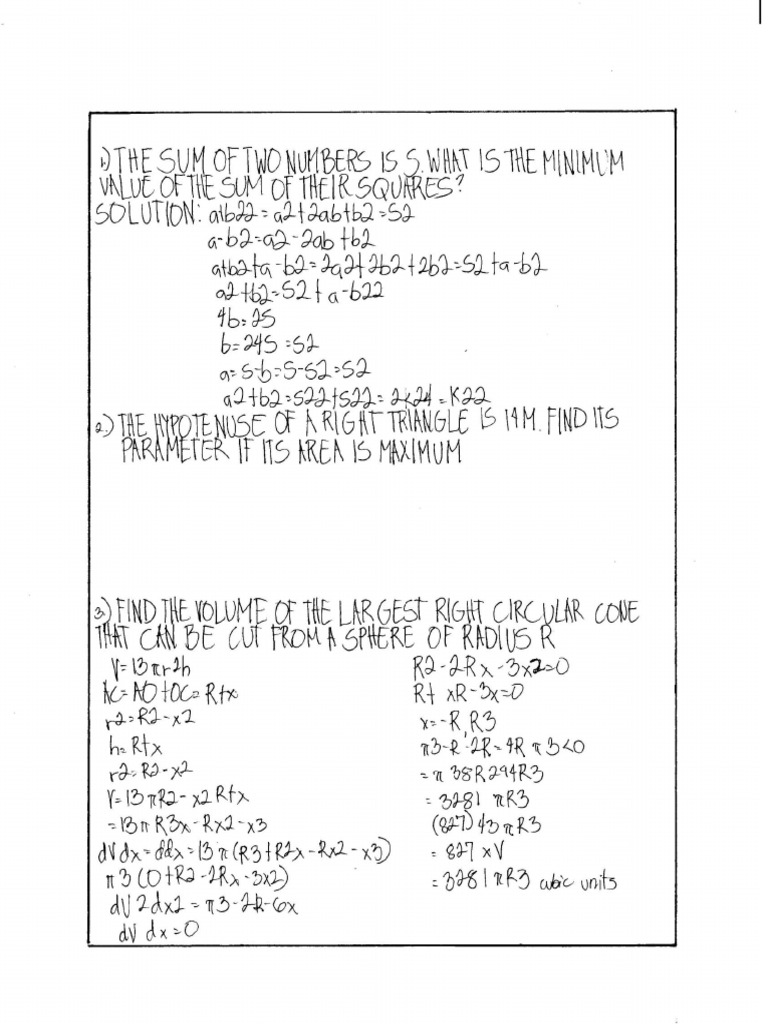 1.) THE SUM OF TWO NUMBERS IS S. WHAT IS THE MINIMUM
VALUE OF THE SUM OF THEIR SQUARES?
SOLUTION: a+b22 = a2+2ab+b2=S2
a-b2=a2-2ab+b2
a+b2+a-b2=2a2+2b2+2b2=S2+a-b2
a2+b2=S2+a-b22
4b=2S
b=24S=S2
a=S-b=S-S2=S2
a2+b2=S22+S22=2K24=K22
2.) THE HYPOTENUSE OF A RIGHT TRIANGLE IS 14M. FIND ITS
PARAMETER IF ITS AREA IS MAXIMUM
3.) FIND THE VOLUME OF THE LARGEST RIGHT CIRCULAR CONE
THAT CAN BE CUT FROM A SPHERE OF RADIUS R
V=13πr2h
AC=AO+OC=R+x
r2=R2-x2
h=R+x
r2=R2-x2
V=13πR2-x2R+x
=13πR3x-Rx2-x3
dVdx=ddx=13π(R3+R2x-Rx2-x3)
π3(0+R2-2Rx-3x2)
dV2dx2=π3-2R-6x
dV dx=0
R2-2Rx-3x2=0
R+xR-3x=0
x=-R,R3
π3-R-2R=4Rπ3<0
=π38R294R3
=3281πR3
(827)43πR3
=827xV
=3281πR3 cubic units